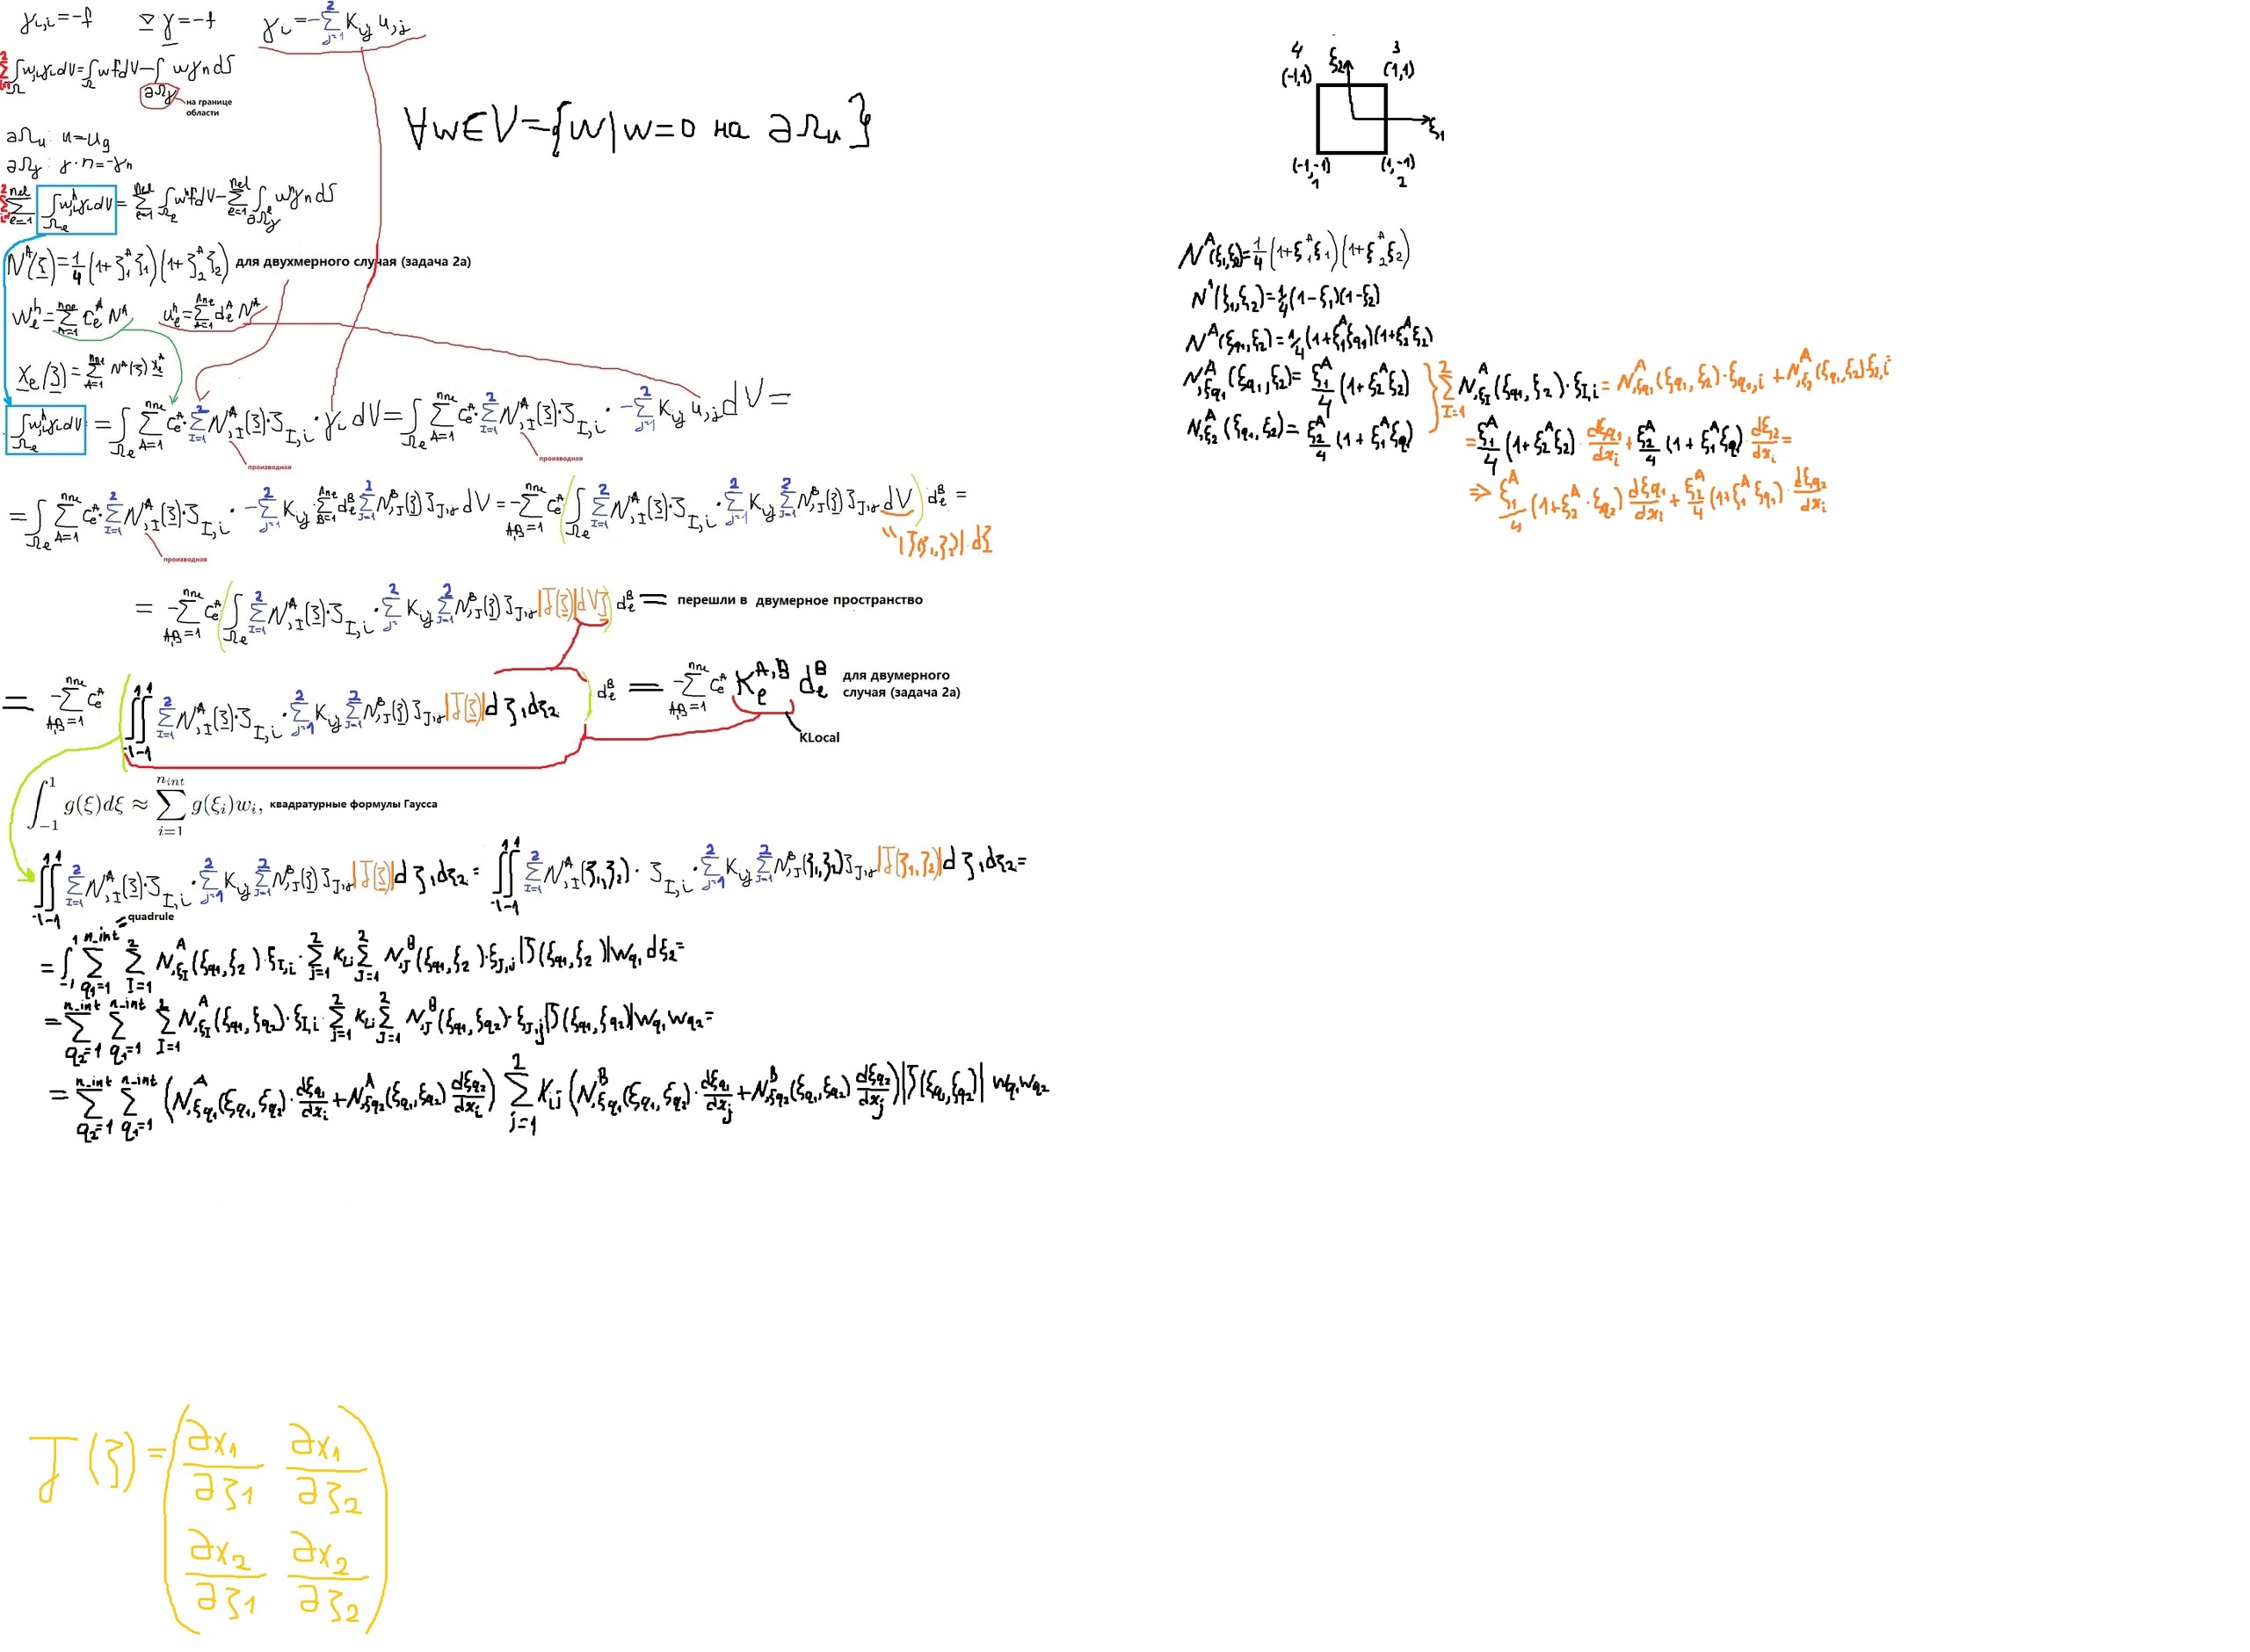 γ_{i,i} = -f   ∇ γ = -f   γ_i = -∑_{j=1}^{2} K_{ij} u_{,j}
∑_{i=1}^{2} ∫_Ω w_{,i} γ_i dV = ∫_Ω w f dV - ∫_{∂Ω_γ} w γ_n dS
на границе
области
∀w∈V={w|w=0 на ∂Ω_u}
∂Ω_u: u=u_g
∂Ω_γ: γ·n=-γ_n
∑_{i=1}^{2} ∑_{e=1}^{nel} ∫_{Ω_e} w^h_{,i} γ_i dV = ∑_{e=1}^{nel} ∫_{Ω_e} w^h f dV - ∑_{e=1}^{nel} ∫_{∂Ω^e_γ} w^h γ_n dS
N^A(ξ) = 1/4 (1+ξ_1^A ξ_1)(1+ξ_2^A ξ_2) для двухмерного случая (задача 2а)
w_e^h = ∑_{A=1}^{nne} c_e^A N^A   u_e^h = ∑_{A=1}^{nne} d_e^A N^A
x_e(ξ) = ∑_{A=1}^{nne} N^A(ξ) x_e^A
∫_{Ω_e} w^h_{,i} γ_i dV = ∫_{Ω_e} ∑_{A=1}^{nne} c_e^A · ∑_{I=1}^{2} N^A_{,I}(ξ)·ξ_{I,i} · γ_i dV = ∫_{Ω_e} ∑_{A=1}^{nne} c_e^A · ∑_{I=1}^{2} N^A_{,I}(ξ)·ξ_{I,i} · -∑_{j=1}^{2} K_{ij} u_{,j} dV =
производная   производная
= ∫_{Ω_e} ∑_{A=1}^{nne} c_e^A · ∑_{I=1}^{2} N^A_{,I}(ξ)·ξ_{I,i} · -∑_{j=1}^{2} K_{ij} · ∑_{B=1}^{nne} d_e^B ∑_{J=1}^{2} N^B_{,J}(ξ) ξ_{J,j} dV = -∑_{A,B=1}^{nne} c_e^A ( ∫_{Ω_e} ∑_{I=1}^{2} N^A_{,I}(ξ)·ξ_{I,i} · ∑_{j=1}^{2} K_{ij} ∑_{J=1}^{2} N^B_{,J}(ξ) ξ_{J,j} dV ) d_e^B =
производная
|J(ξ_1,ξ_2)|·dξ
= -∑_{A,B=1}^{nne} c_e^A ( ∫_{Ω_e} ∑_{I=1}^{2} N^A_{,I}(ξ)·ξ_{I,i} · ∑_{j=}^{2} K_{ij} ∑_{J=1}^{2} N^B_{,J}(ξ) ξ_{J,j} |J(ξ)| dVξ ) d_e^B = перешли в двумерное пространство
= -∑_{A,B=1}^{nne} c_e^A ( ∫_{-1}^{1}∫_{-1}^{1} ∑_{I=1}^{2} N^A_{,I}(ξ)·ξ_{I,i} · ∑_{j=1}^{2} K_{ij} ∑_{J=1}^{2} N^B_{,J}(ξ) ξ_{J,j} |J(ξ)| dξ_1dξ_2 ) d_e^B = -∑_{A,B=1}^{nne} c_e^A K_e^{A,B} d_e^B для двумерного
случая (задача 2а)
KLocal
∫_{-1}^{1} g(ξ)dξ ≈ ∑_{i=1}^{n_{int}} g(ξ_i)w_i, квадратурные формулы Гаусса
∫_{-1}^{1}∫_{-1}^{1} ∑_{I=1}^{2} N^A_{,I}(ξ)·ξ_{I,i} · ∑_{j=1}^{2} K_{ij} ∑_{J=1}^{2} N^B_{,J}(ξ) ξ_{J,j} |J(ξ)| dξ_1dξ_2 = ∫_{-1}^{1}∫_{-1}^{1} ∑_{I=1}^{2} N^A_{,I}(ξ_1,ξ_2) · ξ_{I,i} · ∑_{j=1}^{2} K_{ij} ∑_{J=1}^{2} N^B_{,J}(ξ_1,ξ_2) ξ_{J,j} |J(ξ_1,ξ_2)| dξ_1dξ_2 =
= quadrule
= ∫_{-1}^{1} ∑_{q_1=1}^{n_int} ∑_{I=1}^{2} N^A_{,ξ_I}(ξ_{q1},ξ_2)·ξ_{I,i} · ∑_{j=1}^{2} K_{ij} ∑_{J=1}^{2} N^B_{,J}(ξ_{q1},ξ_2)·ξ_{J,j} |J(ξ_{q1},ξ_2)| w_{q1} dξ_2 =
= ∑_{q_2=1}^{n_int} ∑_{q_1=1}^{n_int} ∑_{I=1}^{2} N^A_{,ξ_I}(ξ_{q1},ξ_{q2})·ξ_{I,i} · ∑_{j=1}^{2} K_{ij} ∑_{J=1}^{2} N^B_{,J}(ξ_{q1},ξ_{q2})·ξ_{J,j} |J(ξ_{q1},ξ_{q2})| w_{q1} w_{q2} =
= ∑_{q_2=1}^{n_int} ∑_{q_1=1}^{n_int} (N^A_{,ξq1}(ξ_{q1},ξ_{q2})·dξ_{q1}/dx_i + N^A_{,ξq2}(ξ_{q1},ξ_{q2}) dξ_{q2}/dx_i) ∑_{j=1}^{2} K_{ij} (N^B_{,ξq1}(ξ_{q1},ξ_{q2})·dξ_{q1}/dx_j + N^B_{,ξq2}(ξ_{q1},ξ_{q2}) dξ_{q2}/dx_j) |J(ξ_{q1},ξ_{q2})| w_{q1} w_{q2}
J(ξ) = ( ∂x_1/∂ξ_1 ∂x_1/∂ξ_2
∂x_2/∂ξ_1 ∂x_2/∂ξ_2 )
4   3
(-1,1) ξ_2 (1,1)
ξ_1
(-1,-1) (1,-1)
1   2
N^A(ξ_1,ξ_2) = 1/4 (1+ξ_1^A ξ_1)(1+ξ_2^A ξ_2)
N^1(ξ_1,ξ_2) = 1/4 (1-ξ_1)(1-ξ_2)
N^A(ξ_{q1},ξ_2) = 1/4 (1+ξ_1^A ξ_{q1})(1+ξ_2^A ξ_2)
N^A_{,ξq1}(ξ_{q1},ξ_2) = ξ_1^A/4 (1+ξ_2^A ξ_2) } ∑_{I=1}^{2} N^A_{,ξ_I}(ξ_{q1},ξ_2)·ξ_{I,i} = N^A_{,ξq1}(ξ_{q1},ξ_2)·ξ_{q1,i} + N^A_{,ξ2}(ξ_{q1},ξ_2) ξ_{2,i} =
N^A_{,ξ2}(ξ_{q1},ξ_2) = ξ_2^A/4 (1+ξ_1^A ξ_q) = ξ_1^A/4 (1+ξ_2^A ξ_2) · dξ_{q1}/dx_i + ξ_2^A/4 (1+ξ_1^A ξ_q) · dξ_2/dx_i =
⇒ ξ_1^A/4 (1+ξ_2^A·ξ_{q2}) dξ_{q1}/dx_i + ξ_2^A/4 (1+ξ_1^A ξ_{q1}) · dξ_{q2}/dx_i